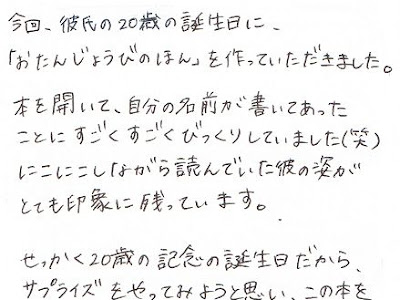 今回、彼氏の20歳の誕生日に、
「おたんじょうびのほん」を作っていただきました。
本を開いて、自分の名前が書いてあった
ことにすごくすごくびっくりしていました(笑)
にこにこしながら読んでいた彼の姿が
とても印象に残っています。
せっかく20歳の記念の誕生日だから、
サプライズをやってみようと思い、この本を